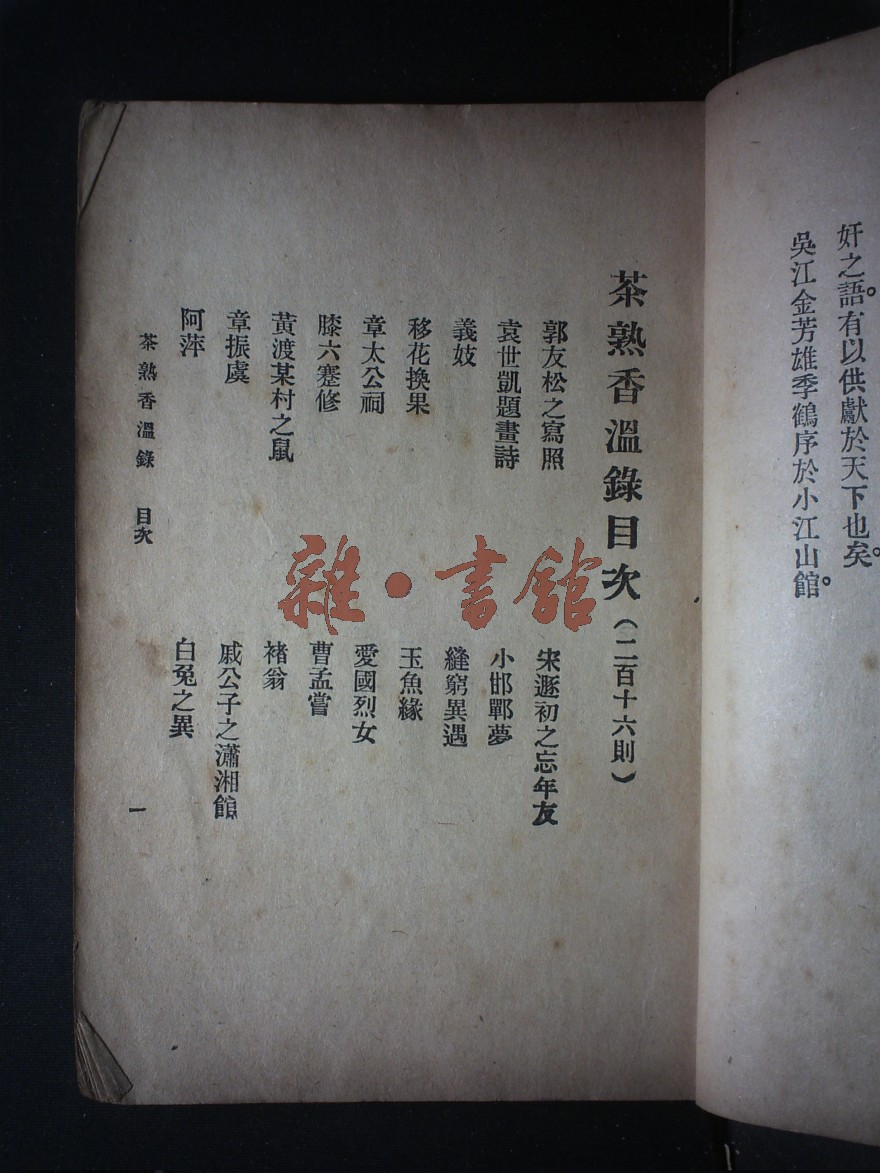 奸之語。有以供獻於天下也矣。
吳江金芳雄季鶴序於小江山館。
茶熟香溫錄目次（二百十六則）
郭友松之寫照
宋遯初之忘年友
袁世凱題畫詩
小邯鄲夢
義妓
縫窮異遇
移花換果
玉魚緣
章太公祠
愛國烈女
滕六蹇修
曹孟嘗
黃渡某村之鼠
褚翁
章振虞
戚公子之瀟湘館
阿萍
白兔之異
茶熟香溫錄 目次
一
雜·書館